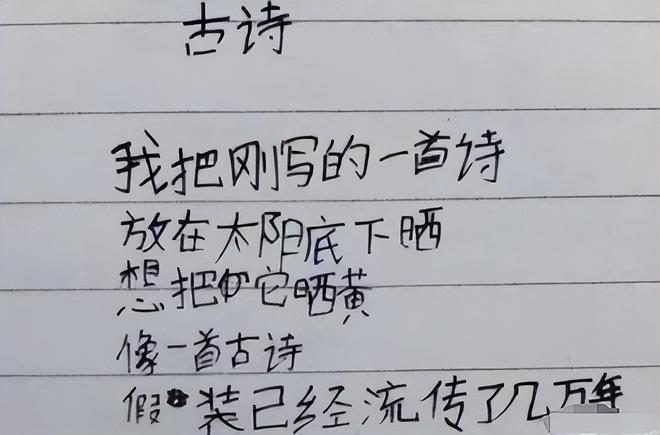 古诗
我把刚写的一首诗
放在太阳底下晒
想把它晒黄
像一首古诗
假装已经流传了几万年